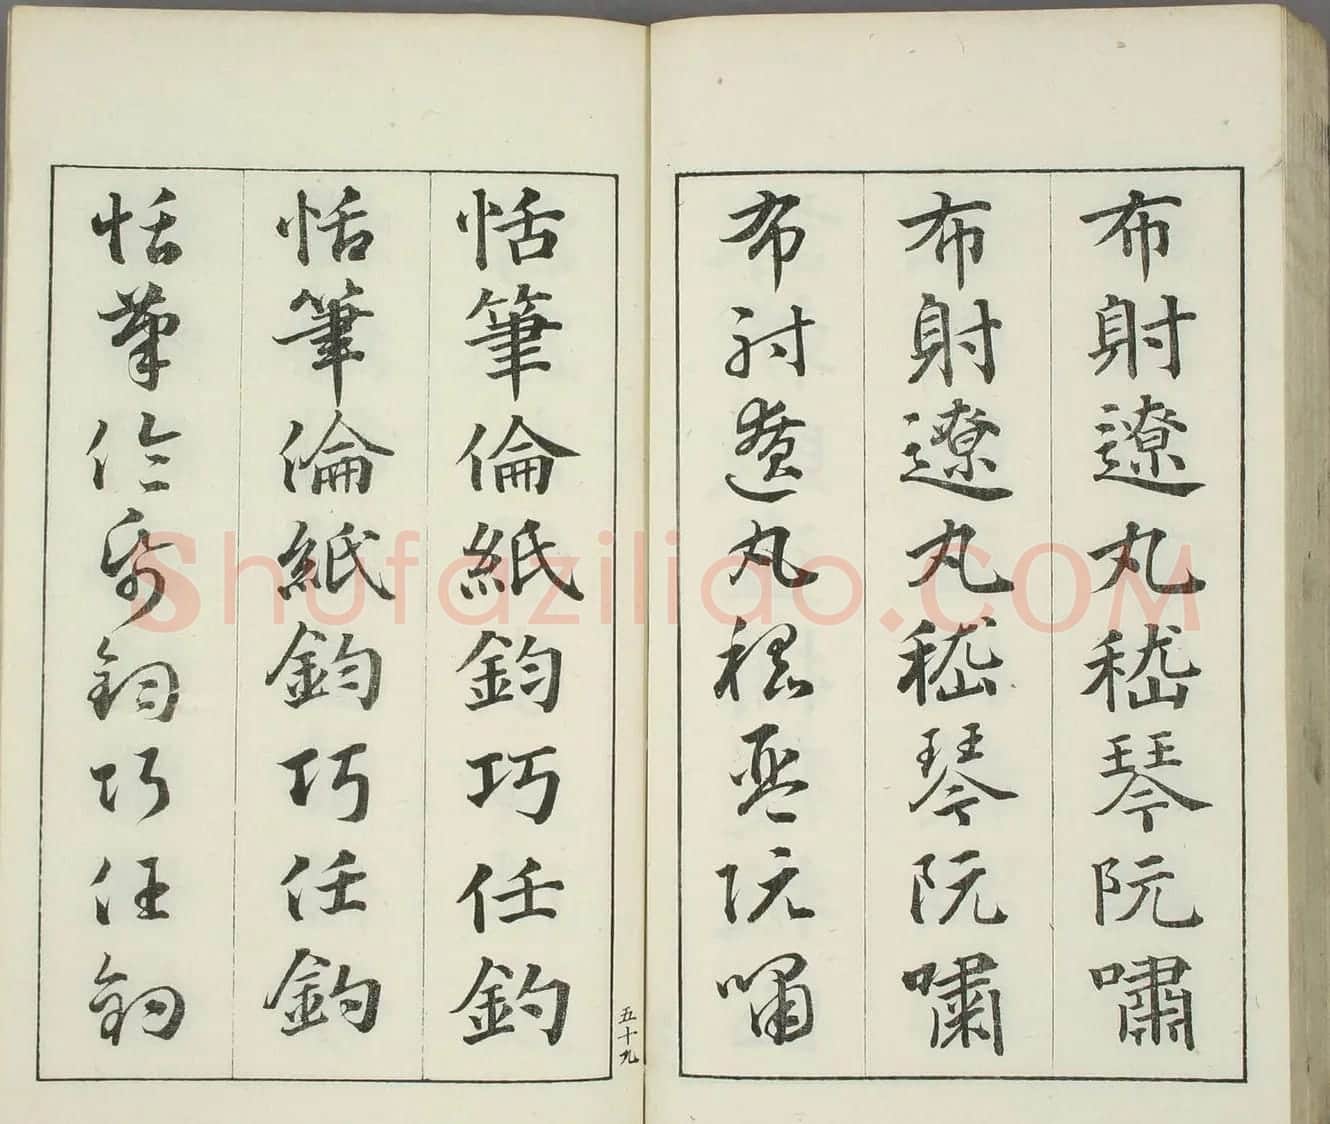 布射遼丸嵇琴阮嘯
布射遼丸嵇琴阮嘯
布射遼丸嵇琴阮嘯
恬筆倫紙鈞巧任釣
恬筆倫紙鈞巧任釣
恬筆倫紙鈞巧任釣
五十九
shufaziliao.COM